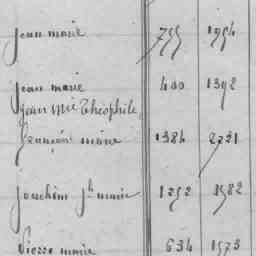 jean marie 755 1954
jean marie 400 1392
jean mie théophile
françois marie 1384 2231
joachim jh marie 1252 1582
Pierre marie 634 1573